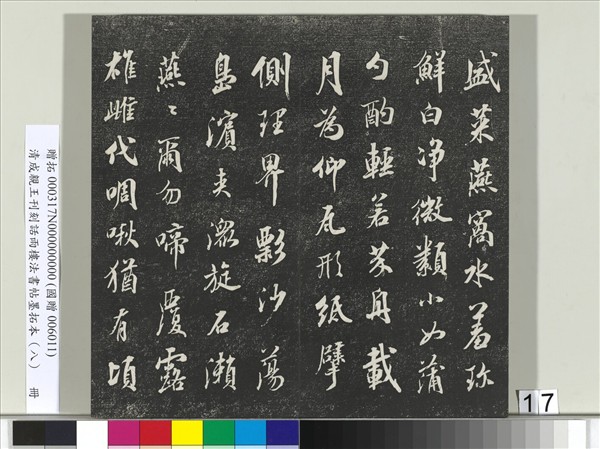 盛萊燕窩水羞珍
鮮白净微類小如蒲
勺酌輕若芥舟載
月為仰瓦形紙擘
側理界沙蕩
島濱夾旋石瀨
燕〻爾勿啼覆露
雄雌代啁啾猶有頃
贈拓 000317N000000000 (國贈 006011)
清成親王刊刻話雨樓法書帖墨拓本（八） 冊
17